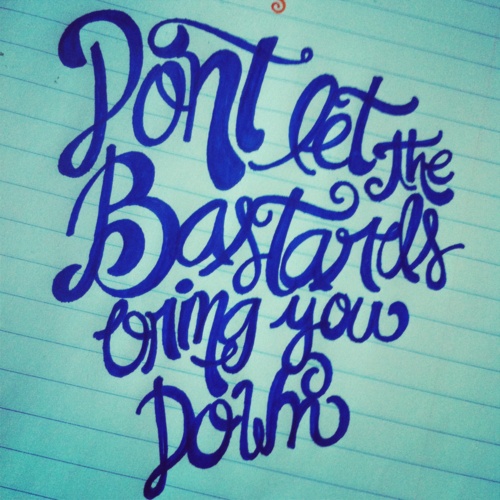 Don't let the
Bastards
bring you
Down